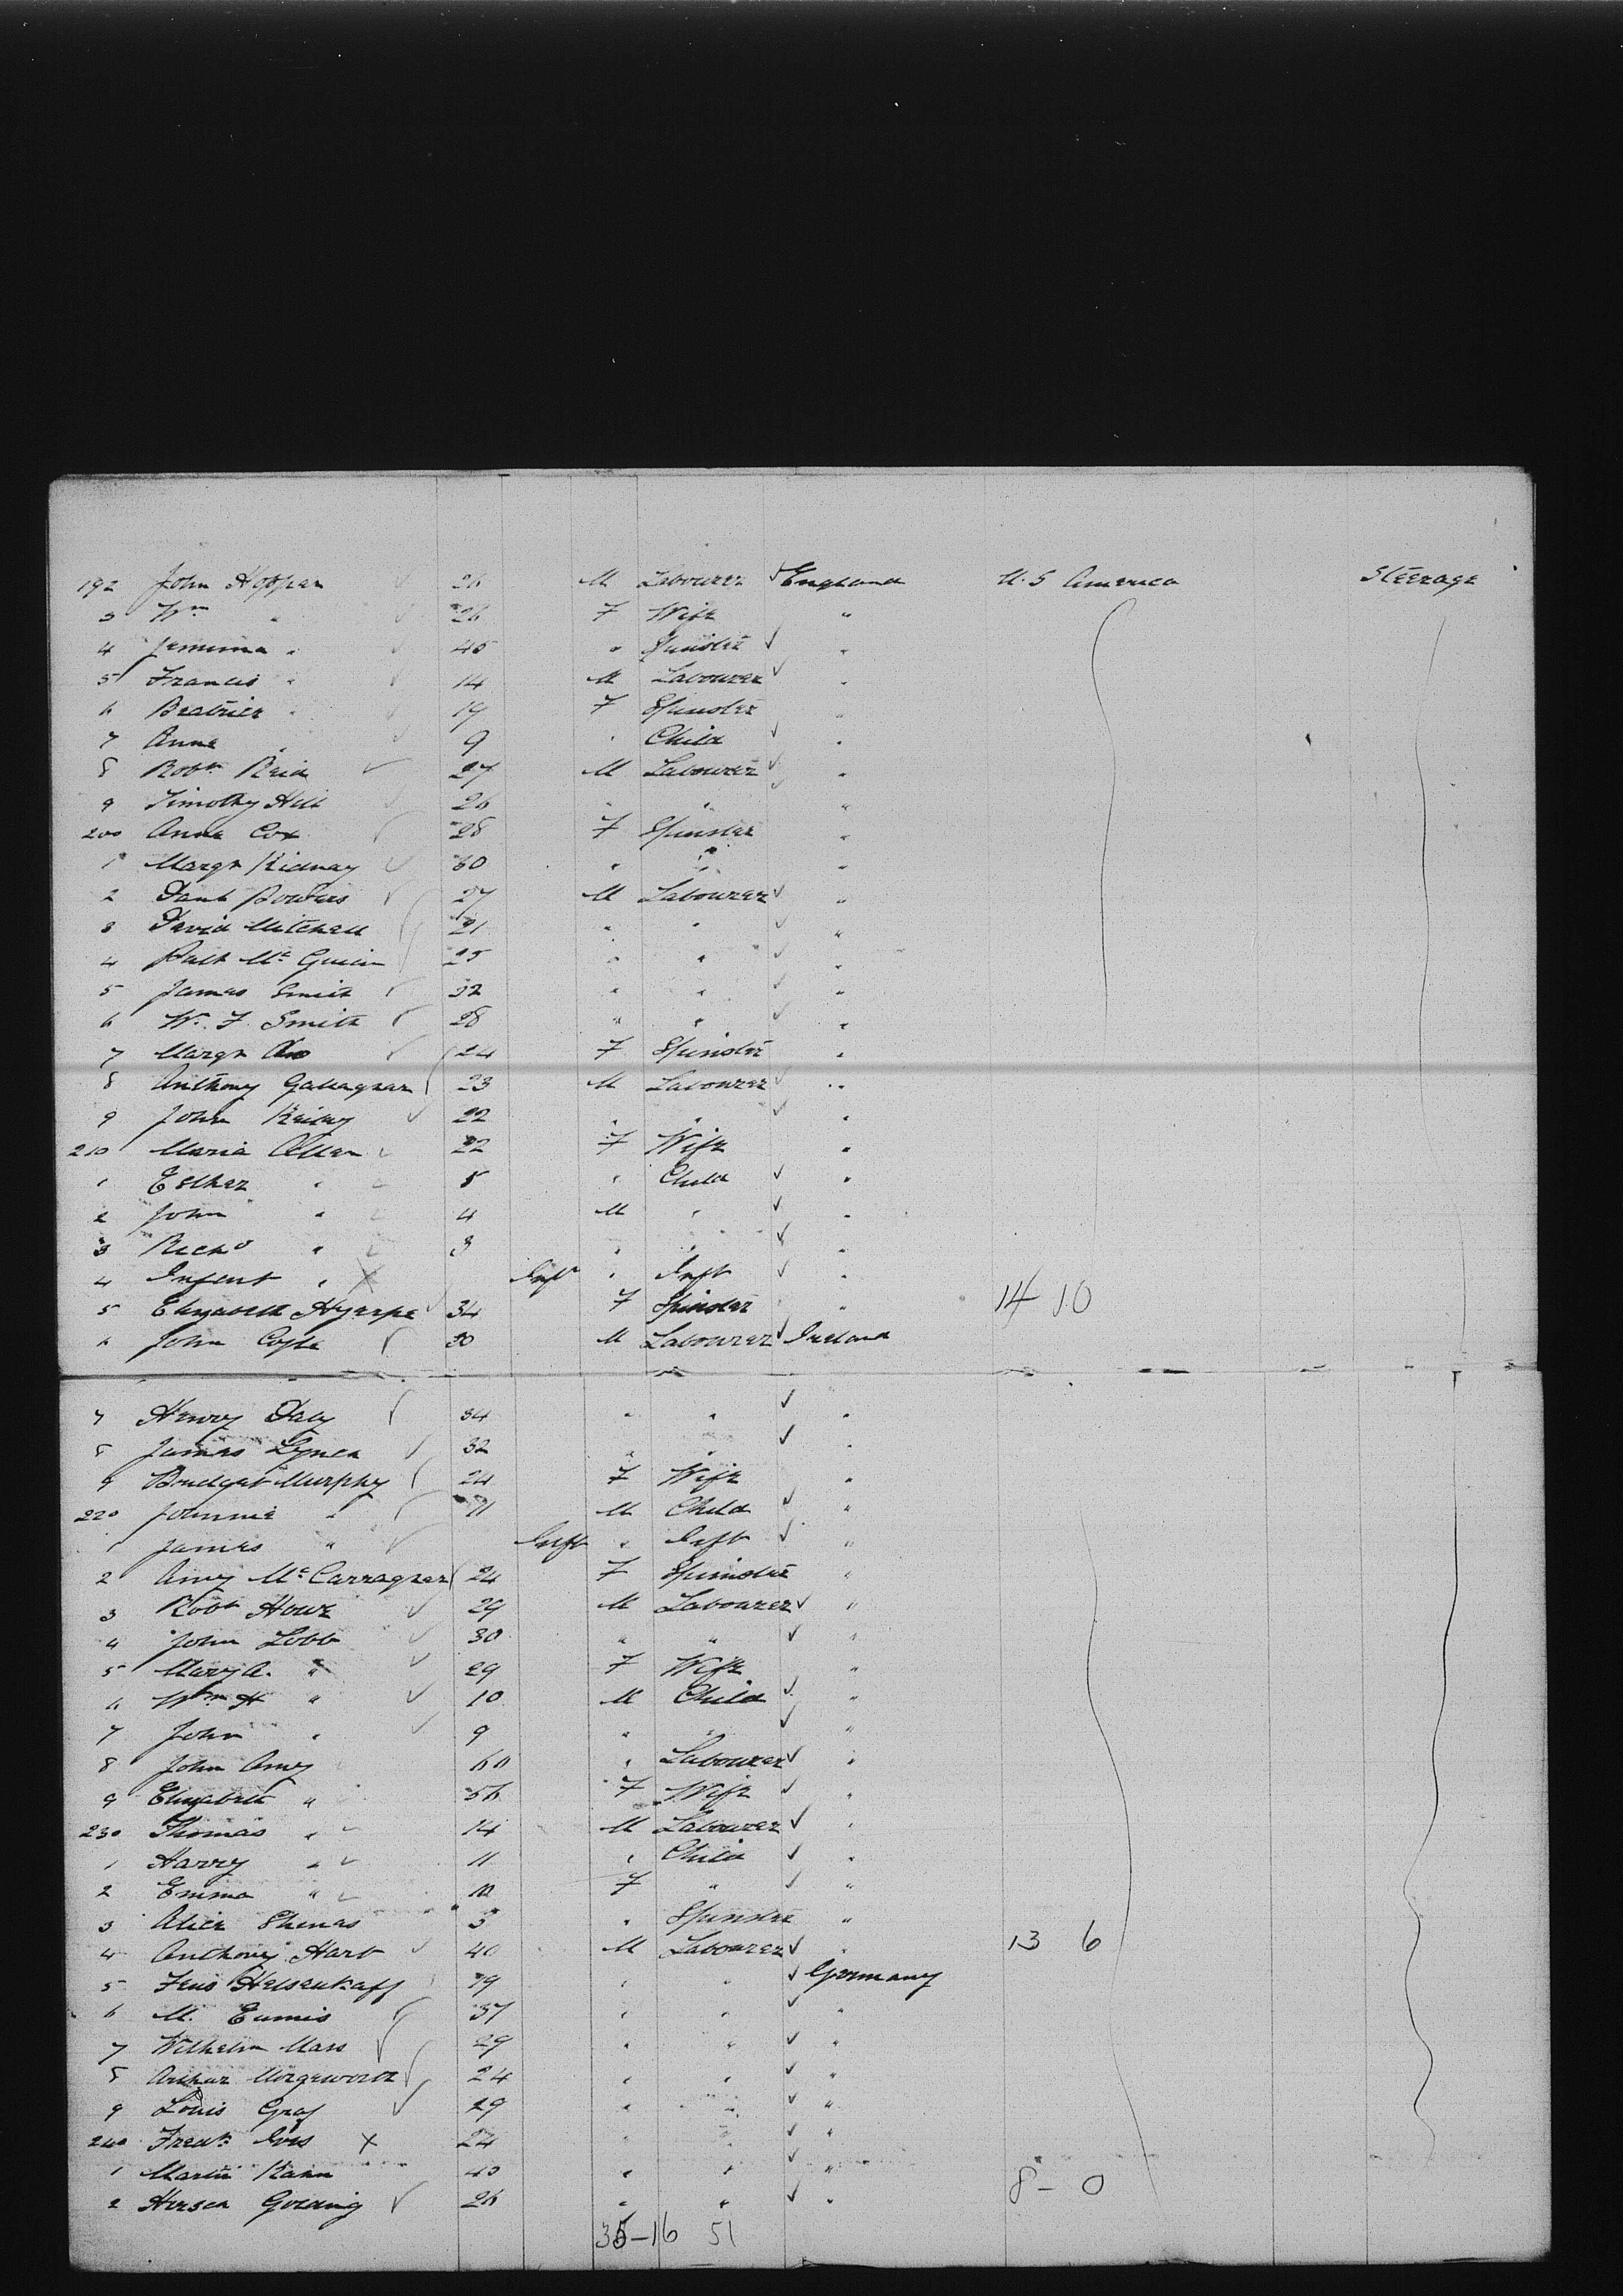 192 John Hoppen 26 M Labourer England U.S America Steerage
3 Wm " 26 F Wife "
4 Jemima " 45 " Spinster "
5 Francis " 14 M Labourer "
6 Beatrice " 19 F Spinster "
7 Anne " 9 " Child "
8 Robt Reid 27 M Labourer "
9 Timothy Hill 26 " " "
200 Anne Cox 28 F Spinster "
1 Margt Kidnay 30 " " "
2 Danl 27 M Labourer "
3 David Mitchell 21 " " "
4 Patk Mc 25 " " "
5 James Smith 32 " " "
6 W. F. Smith 28 " " "
7 Margt 24 F Spinster "
8 Anthony Gallagher 23 M Labourer "
9 John 22 " " "
210 Maria Allen 22 F Wife "
1 Esther " 5 " Child "
2 John " 4 M " "
3 Richd " 3 " " "
4 Infent " X Inft " Inft "
5 Elizabeth 34 F Spinster " 14 10
6 John Coyle 30 M Labourer Ireland
7 Henry Daly 34 " " "
8 James Lynch 32 " " "
9 Bridget Murphy 24 F Wife "
220 Johnnie " 11 M Child "
1 James " Inft " Inft "
2 Amy Mc Carragher 24 F Spinster "
3 Robt Howe 29 M Labourer "
4 John Lobb 30 " " "
5 Mary A. " 29 F Wife "
6 Wm H " 10 M Child "
7 John " 9 " " "
8 John Amey 60 " Labourer "
9 Elizabeth " 56 F Wife "
230 Thomas " 14 M Labourer "
1 Harry " 11 " Child "
2 Emma " 10 F " "
3 Alice " Spinster "
4 Anthony Hart 40 M Labourer " 13 6
5 Jens 19 " " Germany
6 M. 37 " " "
7 Wilhelm Mars 29 " " "
8 Arthur 24 " " "
9 Louis Graf 29 " " "
240 Fredk X 24 " " "
1 Martin Kahn 40 " " "
8 - 0
2 Hirsch Goering 26 " " "
35-16 51